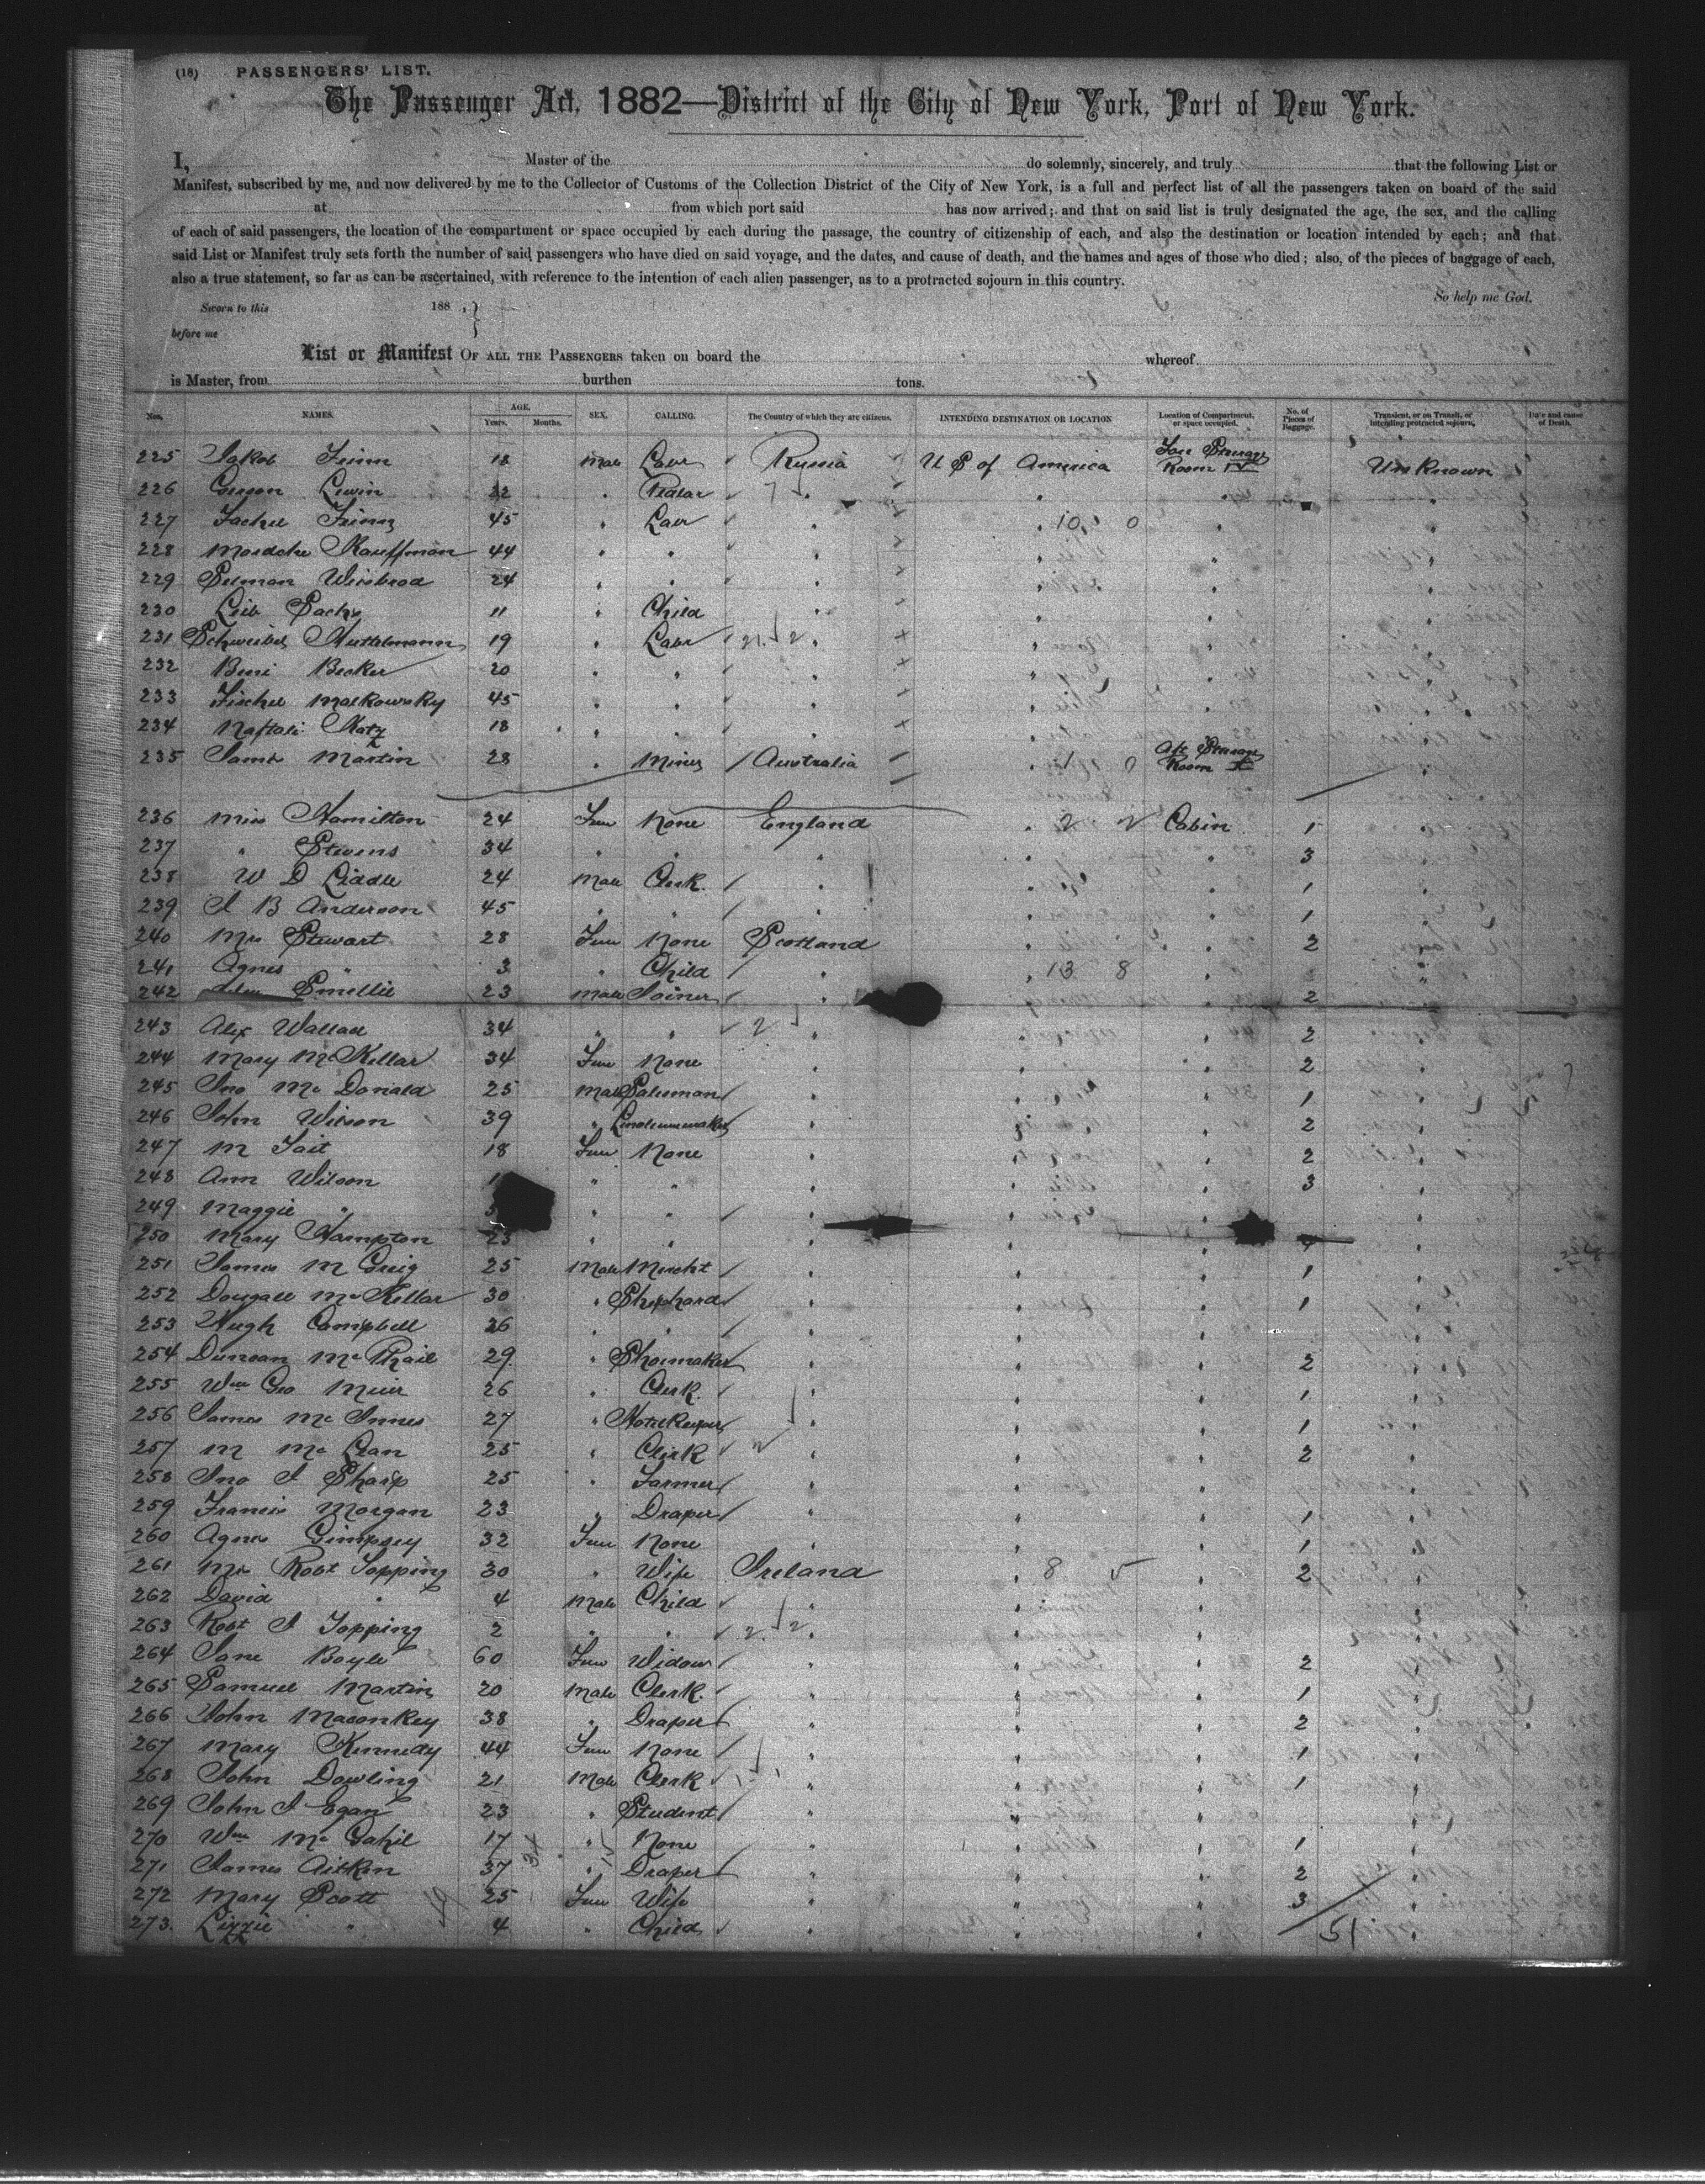 (18) PASSENGERS' LIST.
The Passenger Act, 1882—District of the City of New York, Port of New York.
I, Master of the do solemnly, sincerely, and truly that the following List or
Manifest, subscribed by me, and now delivered by me to the Collector of Customs of the Collection District of the City of New York, is a full and perfect list of all the passengers taken on board of the said
at from which port said has now arrived; and that on said list is truly designated the age, the sex, and the calling
of each of said passengers, the location of the compartment or space occupied by each during the passage, the country of citizenship of each, and also the destination or location intended by each; and that
said List or Manifest truly sets forth the number of said passengers who have died on said voyage, and the dates, and cause of death, and the names and ages of those who died; also, of the pieces of baggage of each,
also a true statement, so far as can be ascertained, with reference to the intention of each alien passenger, as to a protracted sojourn in this country.
So help me God.
Sworn to this 188 ,
before me
List or Manifest OF ALL THE PASSENGERS taken on board the whereof
is Master, from burthen tons.
Nos. NAMES. AGE. Years. Months. SEX. CALLING. The Country of which they are citizens. INTENDING DESTINATION OR LOCATION Location of Compartment, or space occupied. No. of Pieces of Baggage. Transient, or in Transit, or intending protracted sojourn. Date and cause of Death.
225 Jakob 18 Male Labr Russia U S of America Room Unknown
226 Lewin 22 " Pedlar " " " "
227 45 " Labr " " 10 0 " "
228 Mordche Kauffman 44 " " " " " "
229 Selman Weisbrod 24 " " " " " "
230 Leib Sachs 11 " Child " " " "
231 19 " Labr 21 2 " " " "
232 Beni Becker 20 " " " " " "
233 Fischel Malkowsky 45 " " " " " "
234 Naftali Katz 18 " " " " " "
235 Saml Martin 28 " Miner Australia " 1 0 Aft Steerage Room "
236 Miss Hamilton 24 Fem None England " 2 2 Cabin 1 "
237 " Stevens 34 " " " " " 3 "
238 W D Liddle 24 Male Clerk " " " 1 "
239 J B Anderson 45 " " " " " 1 "
240 Mrs Stewart 28 Fem None Scotland " " 2 "
241 Agnes " 3 " Child " " 13 8 " "
242 Smellie 23 Male Joiner " " " 2 "
243 Alex Wallace 34 " " 2 " " " 2 "
244 Mary McKellar 34 Fem None " " " 2 "
245 Jno Mc Donald 25 Male Salesman " " " 1 "
246 John Wilson 39 " Linoleummaker " " " 2 "
247 M Tait 18 Fem None " " " 2 "
248 Ann Wilson " " " " " 3 "
249 Maggie " " " " " " "
250 Mary Hampton 23 " " " "
251 James M Greig 25 Male Mercht " " " 1 "
252 Dougall McKellar 30 " Shephard " " " 1 "
253 Hugh Campbell 26 " " " " " "
254 Duncan Mc Phail 29 " Shoemaker " " " 2 "
255 Wm Geo Muir 26 " Clerk " " " 1 "
256 James Mc Innes 27 " Hotelkeeper " " " 1 "
257 M Mc Lean 25 " Clerk " " " 2 "
258 Jno J Sharp 25 " Farmer " " " "
259 Francis Morgan 23 " Draper " " " 1 "
260 Agnes Gimpsey 32 Fem None " " " 1 "
261 Mrs Robt Topping 30 " Wife Ireland " 8 5 " 2 "
262 David " 4 Male Child " " " "
263 Robt J Topping 2 " " 2 2 " " " "
264 Jane Boyle 60 Fem Widow " " " 2 "
265 Samuel Martin 20 Male Clerk " " " 1 "
266 John Maconkey 38 " Draper " " " 2 "
267 Mary Kennedy 44 Fem None " " " 1 "
268 John Dowling 21 Male Clerk " " " 1 "
269 John J Egan 23 " Student " " " "
270 Wm Mc Gahie 17 " None " " " 1 "
271 James Aitken 37 " Draper " " " 2 "
272 Mary Scott 25 Fem Wife " " " 3 "
273 Lizzie " 4 " Child " " " 51 "